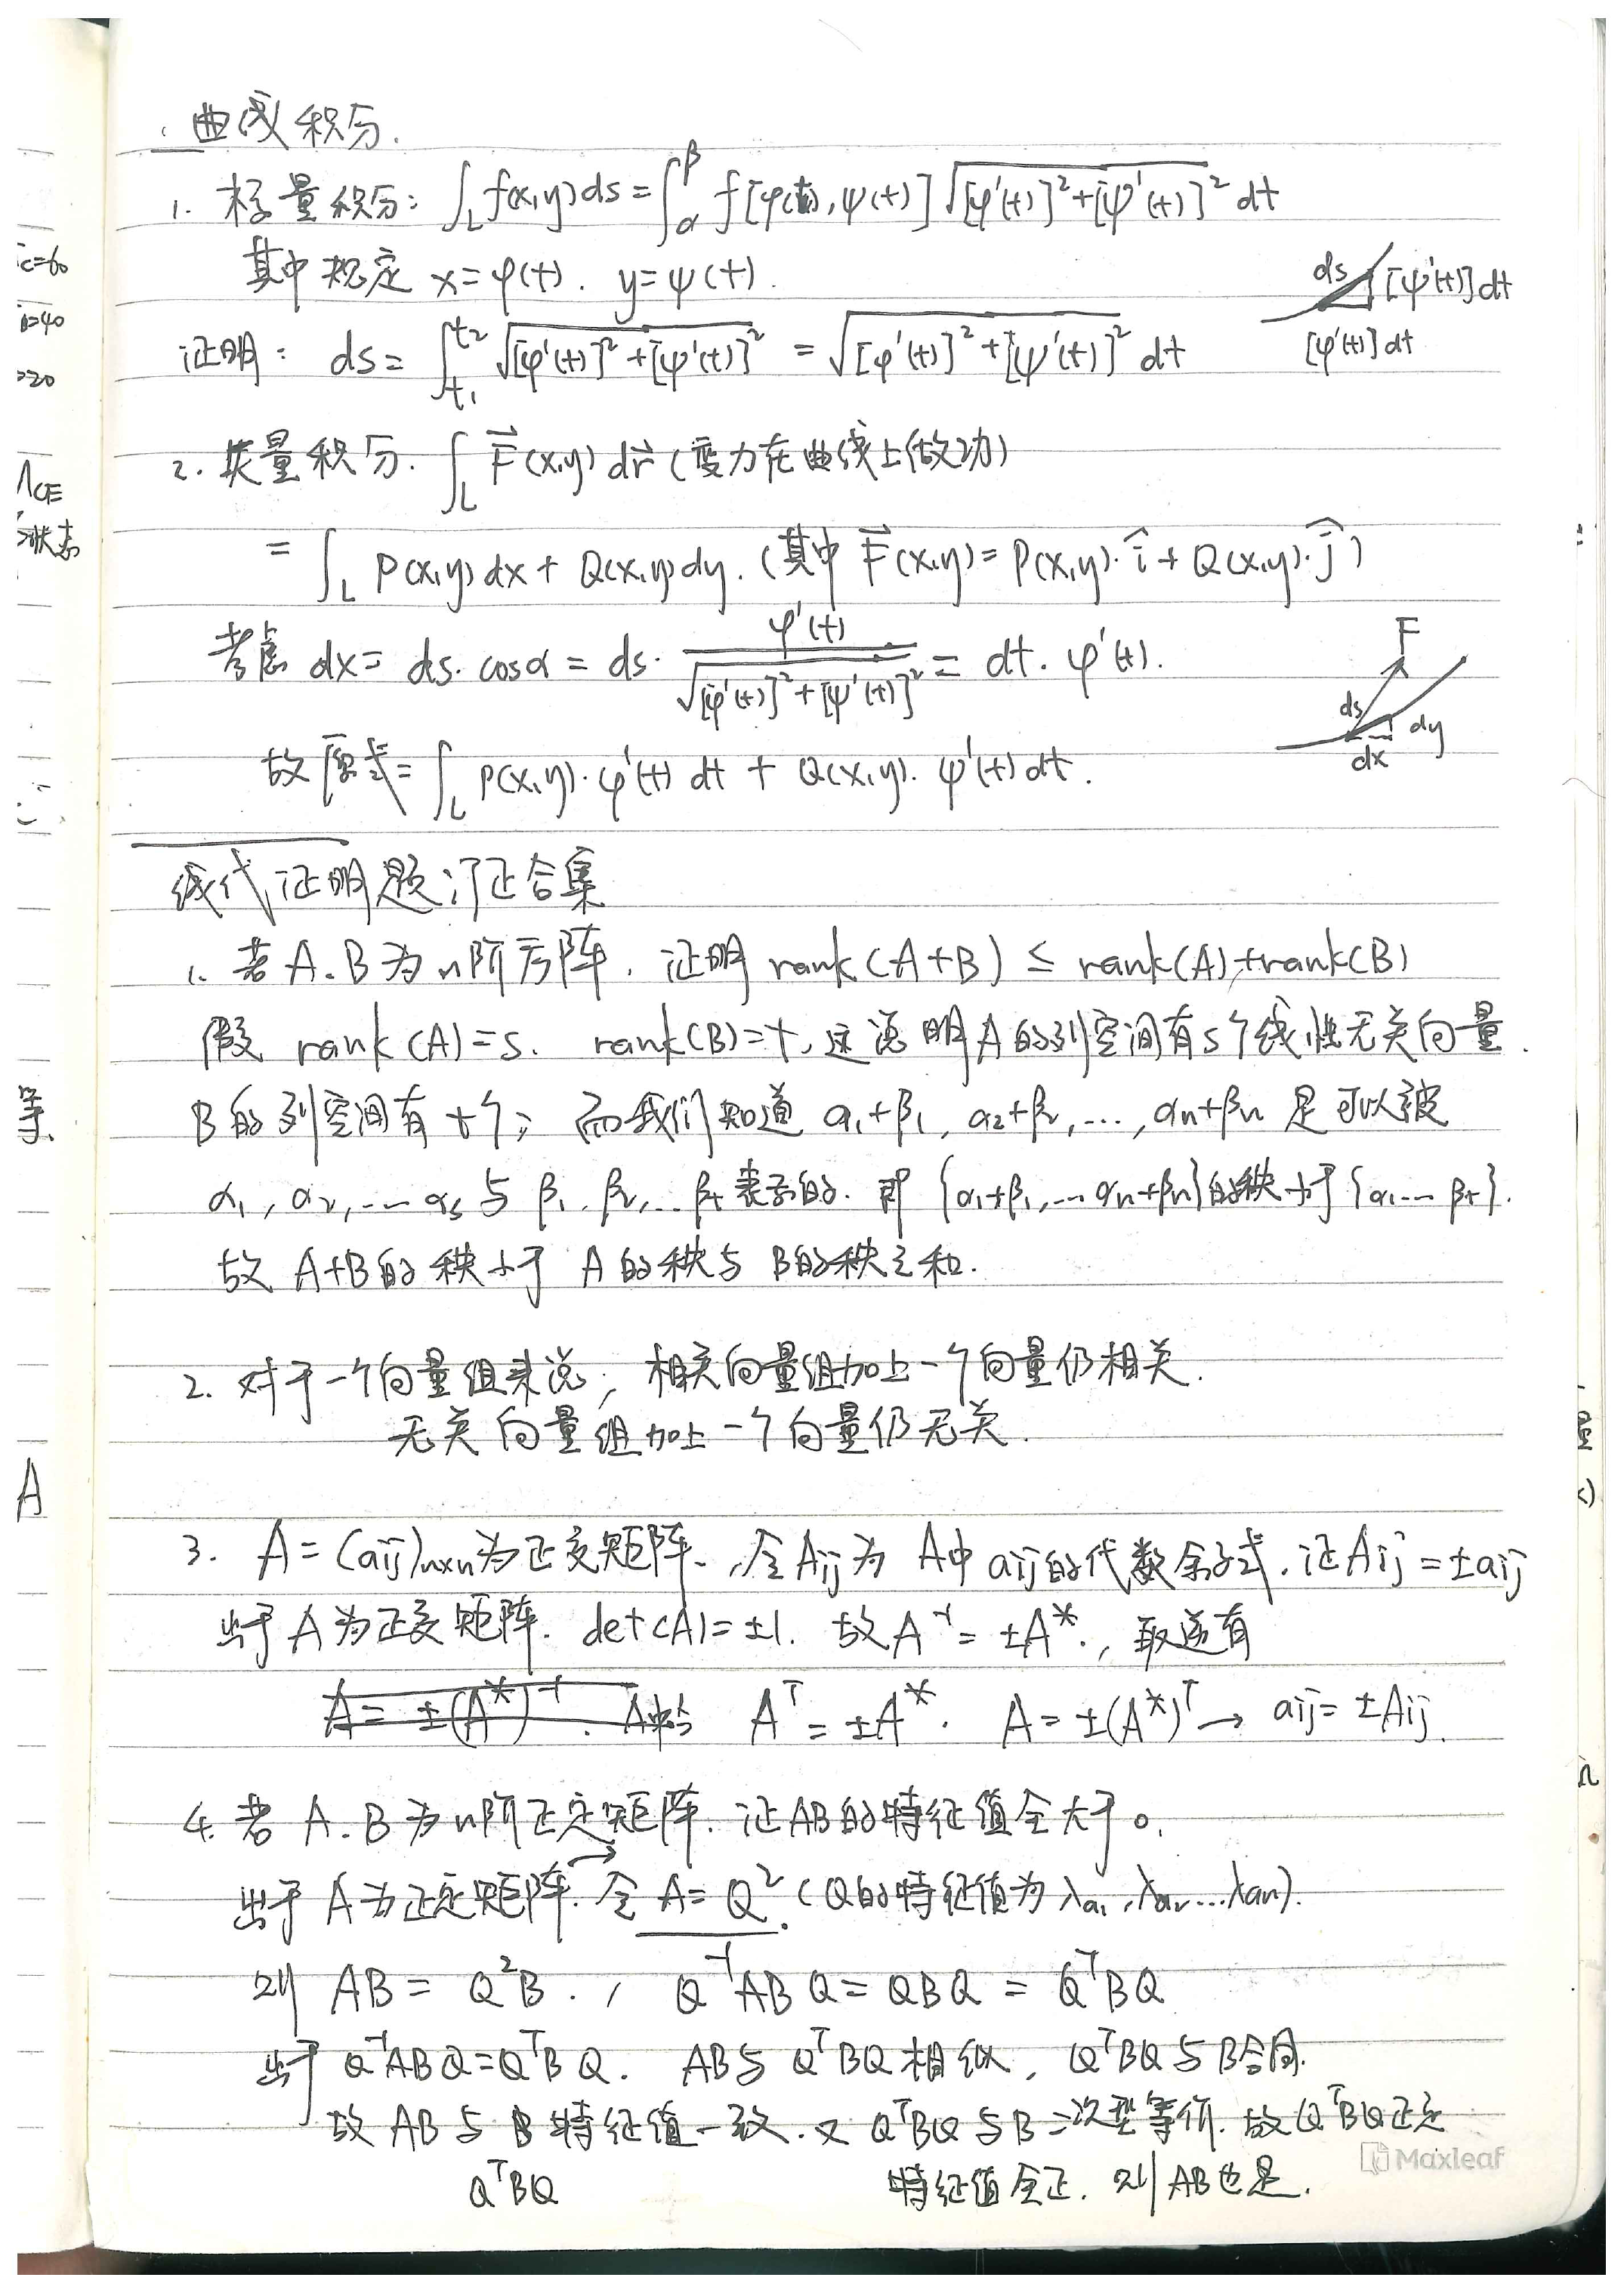 曲线积分.
1. 标量积分: ∫_L f(x,y)ds = ∫_α^β f[φ(t),ψ(t)]√([φ'(t)]²+[ψ'(t)]²) dt
其中规定 x=φ(t). y=ψ(t).
ds [ψ'(t)]dt
[φ'(t)]dt
证明: ds= ∫_{t₁}^{t₂} √([φ'(t)]²+[ψ'(t)]²) = √([φ'(t)]²+[ψ'(t)]²) dt
2. 矢量积分. ∫_L F⃗(x,y) dr⃗ (变力在曲线上做功)
= ∫_L P(x,y)dx+Q(x,y)dy. (其中 F⃗(x,y)=P(x,y)·î+Q(x,y)·ĵ)
考虑 dx= ds·cosα = ds· φ'(t)/√([φ'(t)]²+[ψ'(t)]²) = dt·φ'(t).
F
ds dy
dx
故原式= ∫_L P(x,y)·φ'(t) dt + Q(x,y)·ψ'(t)dt.
线代证明题订正合集
1. 若A.B为n阶方阵, 证明 rank(A+B) ≤ rank(A)+rank(B)
假设 rank(A)=s. rank(B)=t, 这说明A的列空间有s个线性无关向量.
B的列空间有t个; 而我们知道 α₁+β₁, α₂+β₂,…,αn+βn 是可以被
α₁,α₂,…αs与β₁.β₂,…βt表示的. 即{α₁+β₁,…αn+βn}的秩小于{α₁…βt}.
故 A+B的秩小于 A的秩与B的秩之和.
2. 对于一个向量组来说, 相关向量组加上一个向量仍相关.
无关向量组加上一个向量仍无关.
3. A=(aij)n×n为正交矩阵, 令Aij为 A中aij的代数余子式. 证Aij=±aij
由于A为正交矩阵. det(A)=±1. 故A⁻¹=±A*.,
A=±(A*)⁻¹. Aᵀ=±A*. A=±(A*)ᵀ→ aij=±Aij.
4. 若A.B为n阶正定矩阵. 证AB的特征值全大于0.
由于A为正定矩阵. 令A=Q².(Q的特征值为λa₁,λa₂…λan).
则 AB= Q²B., Q⁻¹ABQ=QBQ=QᵀBQ
由于Q⁻¹ABQ=QᵀBQ. AB与QᵀBQ相似, QᵀBQ与B合同.
故AB与B特征值一致. 又QᵀBQ与B二次型等价. 故QᵀBQ正定
QᵀBQ 特征值全正. 则AB也是.
Maxleaf
c=60
=40
=20
状态
等.
A
量